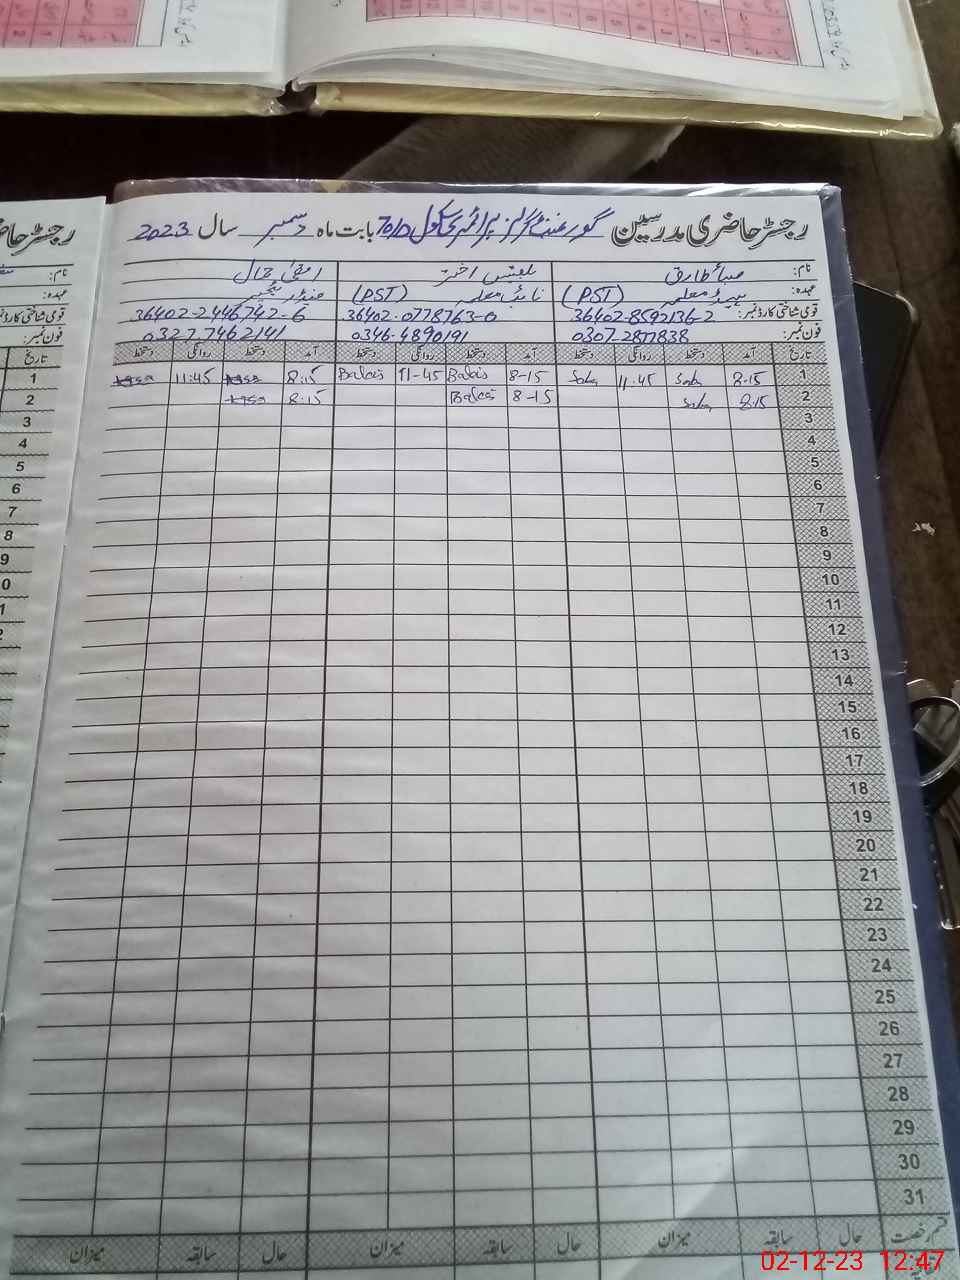 رجسٹر حاضری مدرسین گورنمنٹ گرلز پرائمری سکول 70/D بابت ماہ دسمبر سال 2023
نام: صبا طارق بلقیس اختر
عہدہ: ہیڈ معلمہ (PST) نائب معلمہ (PST)
قومی شناختی کارڈ نمبر: 36402-8592136-2 36402-0778763-0 36402-2446742-6
فون نمبر: 0307-2877838 0346-4890191 0327 7462141
تاریخ آمد دستخط روانگی دستخط آمد دستخط روانگی دستخط آمد دستخط روانگی دستخط
1 8.15 Saba 11:45 Saba 8-15 Balqis 11-45 Balqis 8:15 11:45
2 8.15 Saba 8-15 Balqis 8:15
3
4
5
6
7
8
9
10
11
12
13
14
15
16
17
18
19
20
21
22
23
24
25
26
27
28
29
30
31
قسم رخصت حال سابقہ میزان حال سابقہ میزان حال سابقہ میزان
02-12-23 12:47